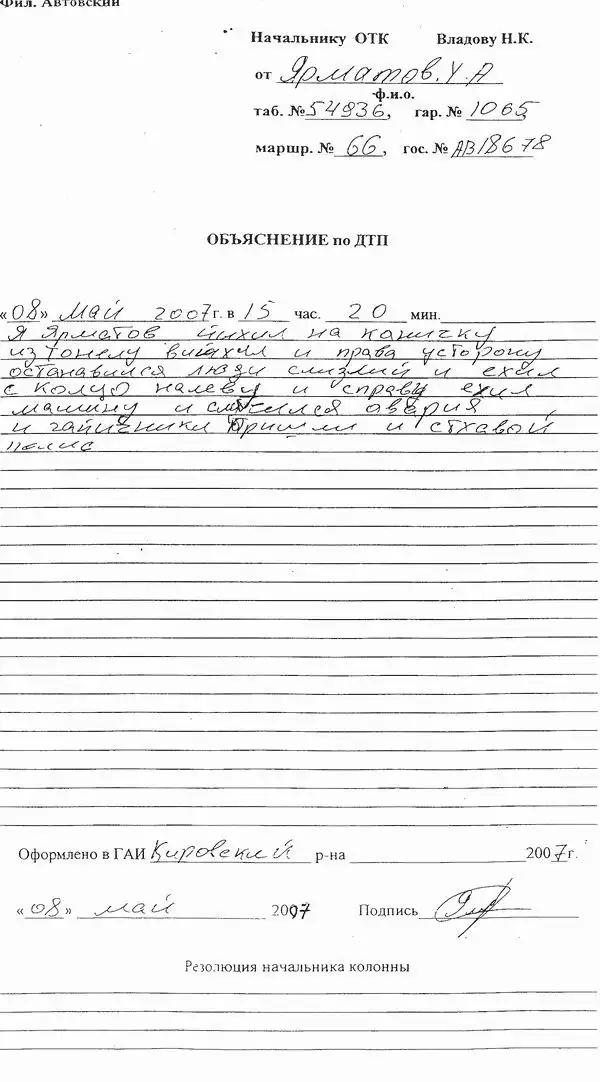 Фил. Автовский
Начальнику ОТК Владову Н.К.
от Ярматов.У.А
ф.и.о.
таб. №54936, гар. № 1065
маршр. № 66, гос. № АВ18678
ОБЪЯСНЕНИЕ по ДТП
«08» май 2007г. в 15 час. 20 мин.
я Ярматов йихил на каничку
из тонелу виихил и права усторону
останавился люди слизлий и ехил
с колцо налеву и справы ехил
машину и случился авария,
и гайичники пришли и стхавой
полис
Оформлено в ГАИ Кировский р-на 2007г.
«08» май 2007 Подпись
Резолюция начальника колонны